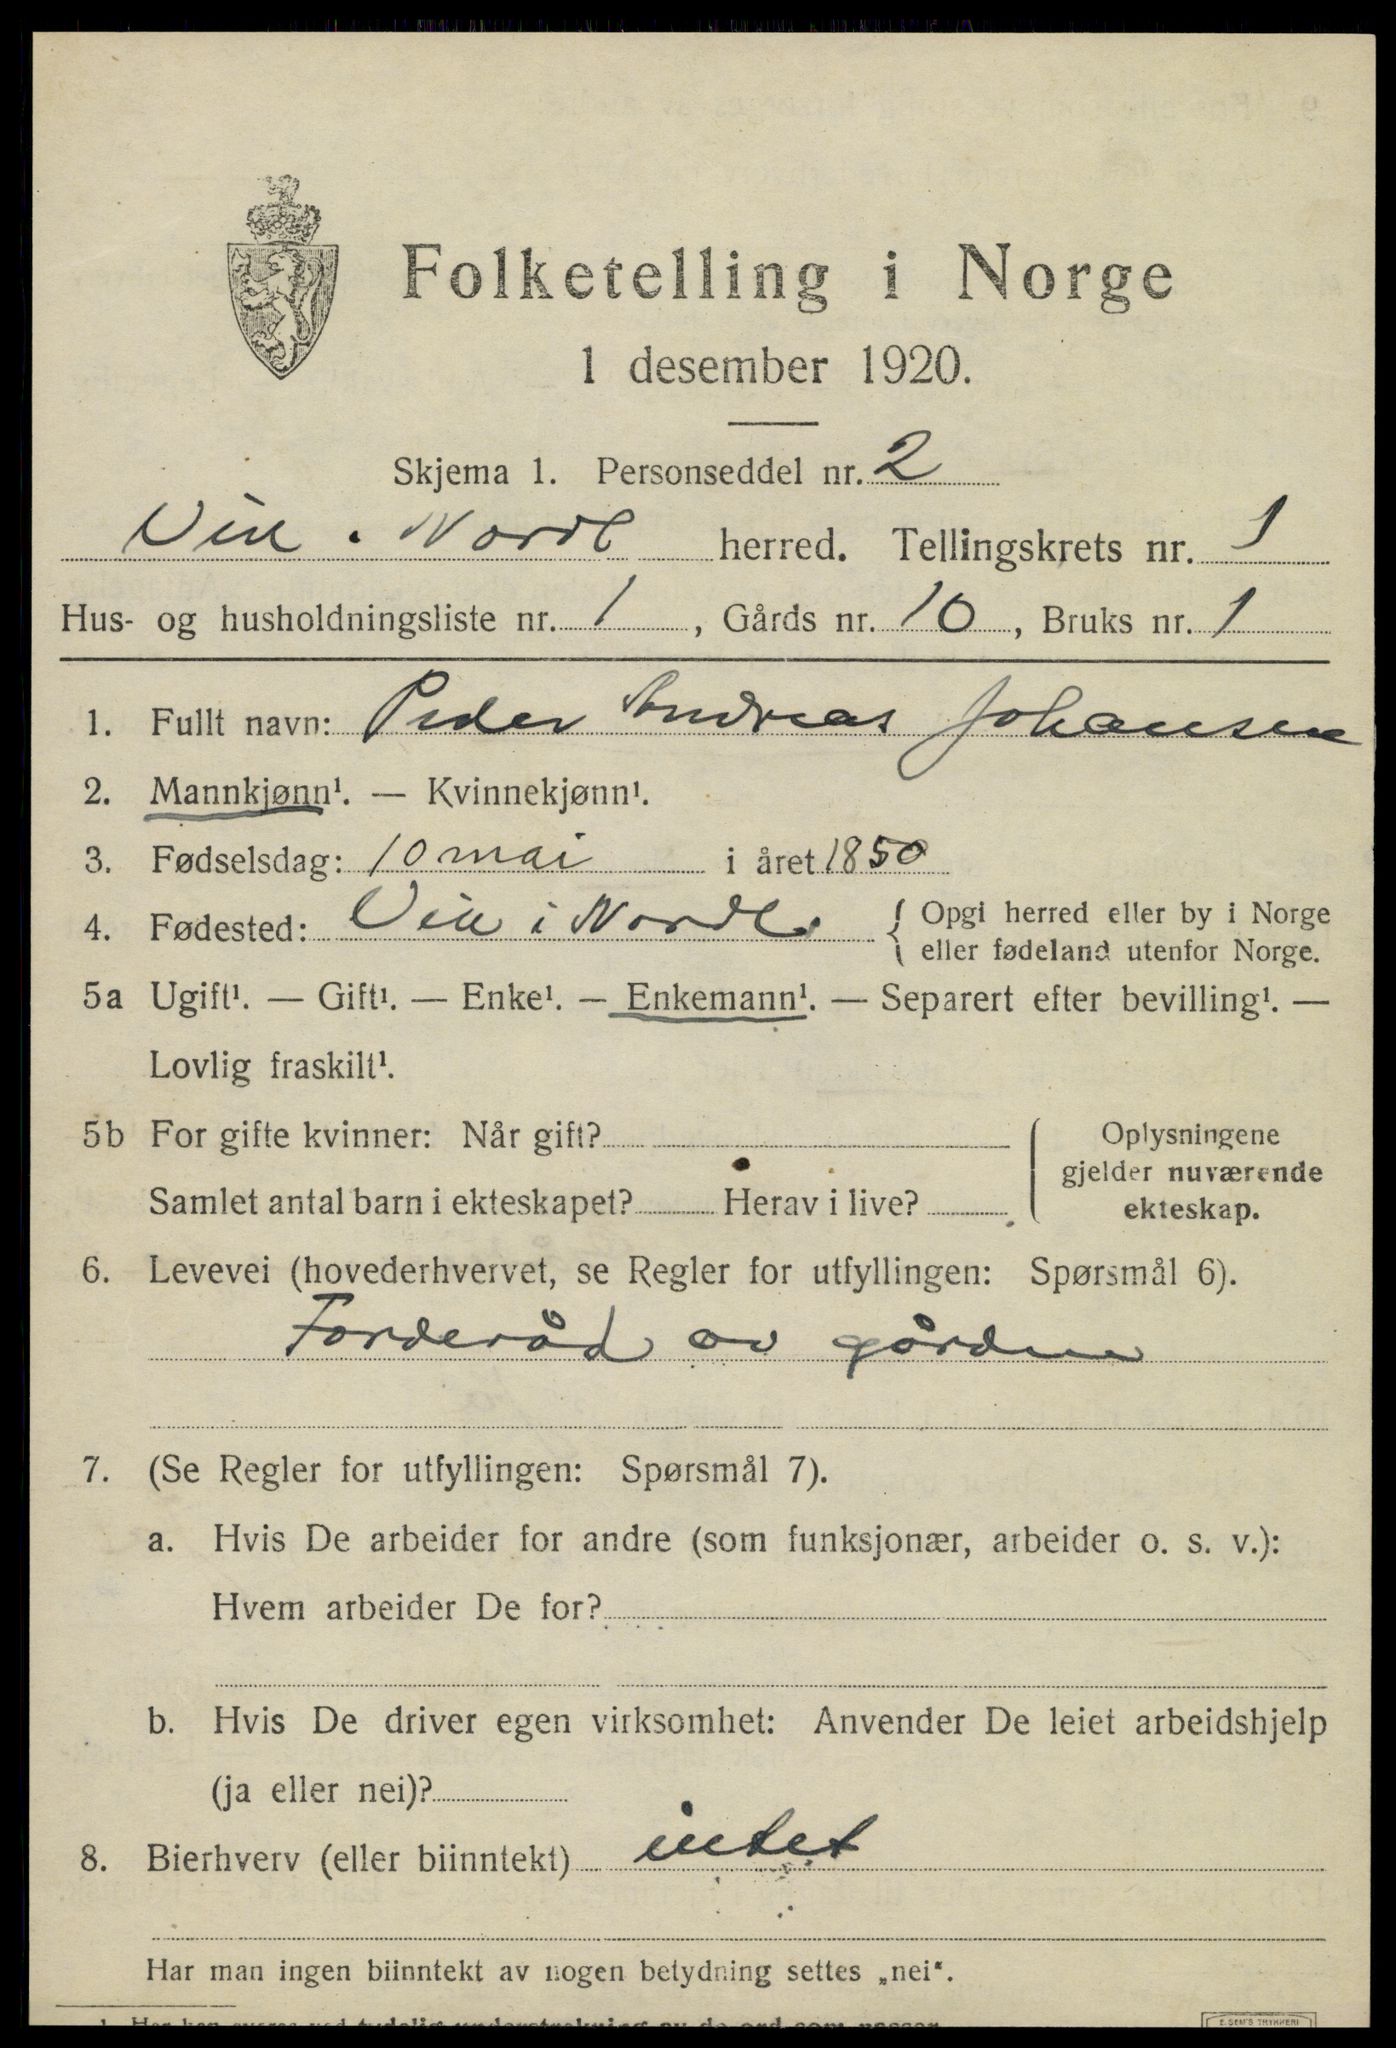 Folketelling i Norge
1 desember 1920.
Skjema 1. Personseddel nr. 2
Vik i Nordl herred. Tellingskrets nr. 1
Hus- og husholdningsliste nr. 1, Gårds nr. 10, Bruks nr. 1
1. Fullt navn: Peder Andreas Johansen
2. Mannkjønn¹. — Kvinnekjønn¹.
3. Fødselsdag: 10 mai i året 1850
4. Fødested: Vik i Nordl. { Opgi herred eller by i Norge
eller fødeland utenfor Norge.
5a Ugift¹. — Gift¹. — Enke¹. — Enkemann¹. — Separert efter bevilling¹. —
Lovlig fraskilt¹.
5b For gifte kvinner: Når gift?
Samlet antal barn i ekteskapet? Herav i live?
Oplysningene
gjelder nuværende
ekteskap.
6. Levevei (hovederhvervet, se Regler for utfyllingen: Spørsmål 6).
Forderåd av gården
7. (Se Regler for utfyllingen: Spørsmål 7).
a. Hvis De arbeider for andre (som funksjonær, arbeider o. s. v.):
Hvem arbeider De for?
b. Hvis De driver egen virksomhet: Anvender De leiet arbeidshjelp
(ja eller nei)?
8. Bierhverv (eller biinntekt) intet
Har man ingen biinntekt av nogen betydning settes „nei“.
1. Her kan svares ved tydelig understrekning av de ord som passer.
E. SEM'S TRYKKERI